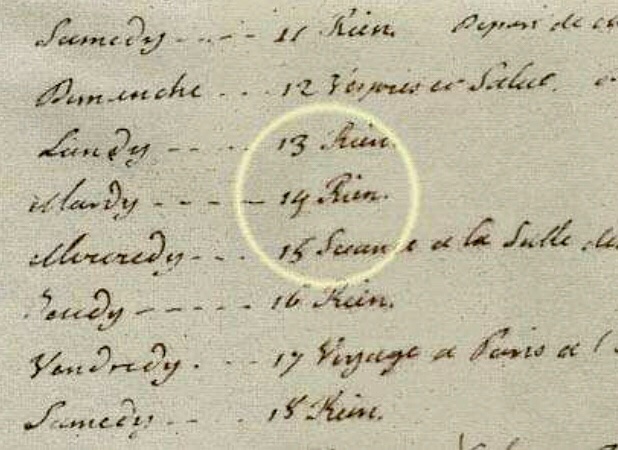 Samedy - - - - 11 Rien. Depart de
Dimanche . . . 12 Vespres et Salut.
Lundy - - - - 13 Rien.
Mardy - - - - - 14 Rien.
Mercredy - - . 15 Seance a la Salle des
Jeudy - - - - - 16 Rien.
Vendredy . - - 17 Voyage a Paris a l
Samedy - - . 18 Rien.